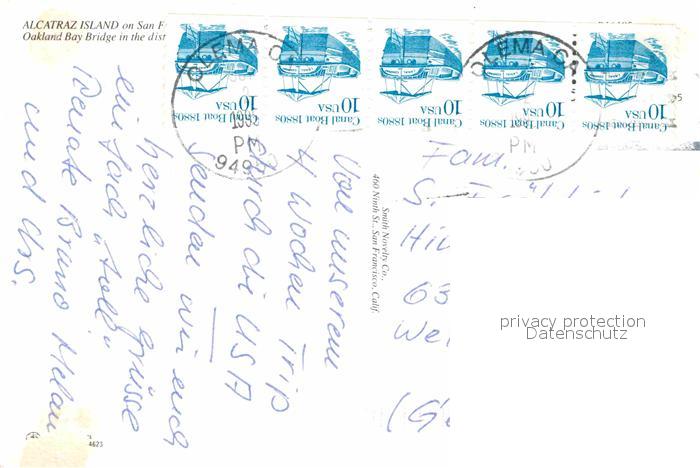 ALCATRAZ ISLAND on San F
Oakland Bay Bridge in the dist
OLEMA CA
PM
949
OLEMA CA
PM
10 USA
Canal Boat 1880s
10 USA
Canal Boat 1880s
10 USA
Canal Boat 1880s
10 USA
Canal Boat 1880s
10 USA
Canal Boat 1880s
Von unserem
4 Wochen Trip
durch die USA
senden wir euch
herzliche Grüsse
einfach "toll"
Renate Bruno
und Urs.
Smith Novelty Co.,
460 Ninth St., San Francisco, Calif.
Fam.
S.
Hi
63
We
(G
privacy protection
Datenschutz
4623